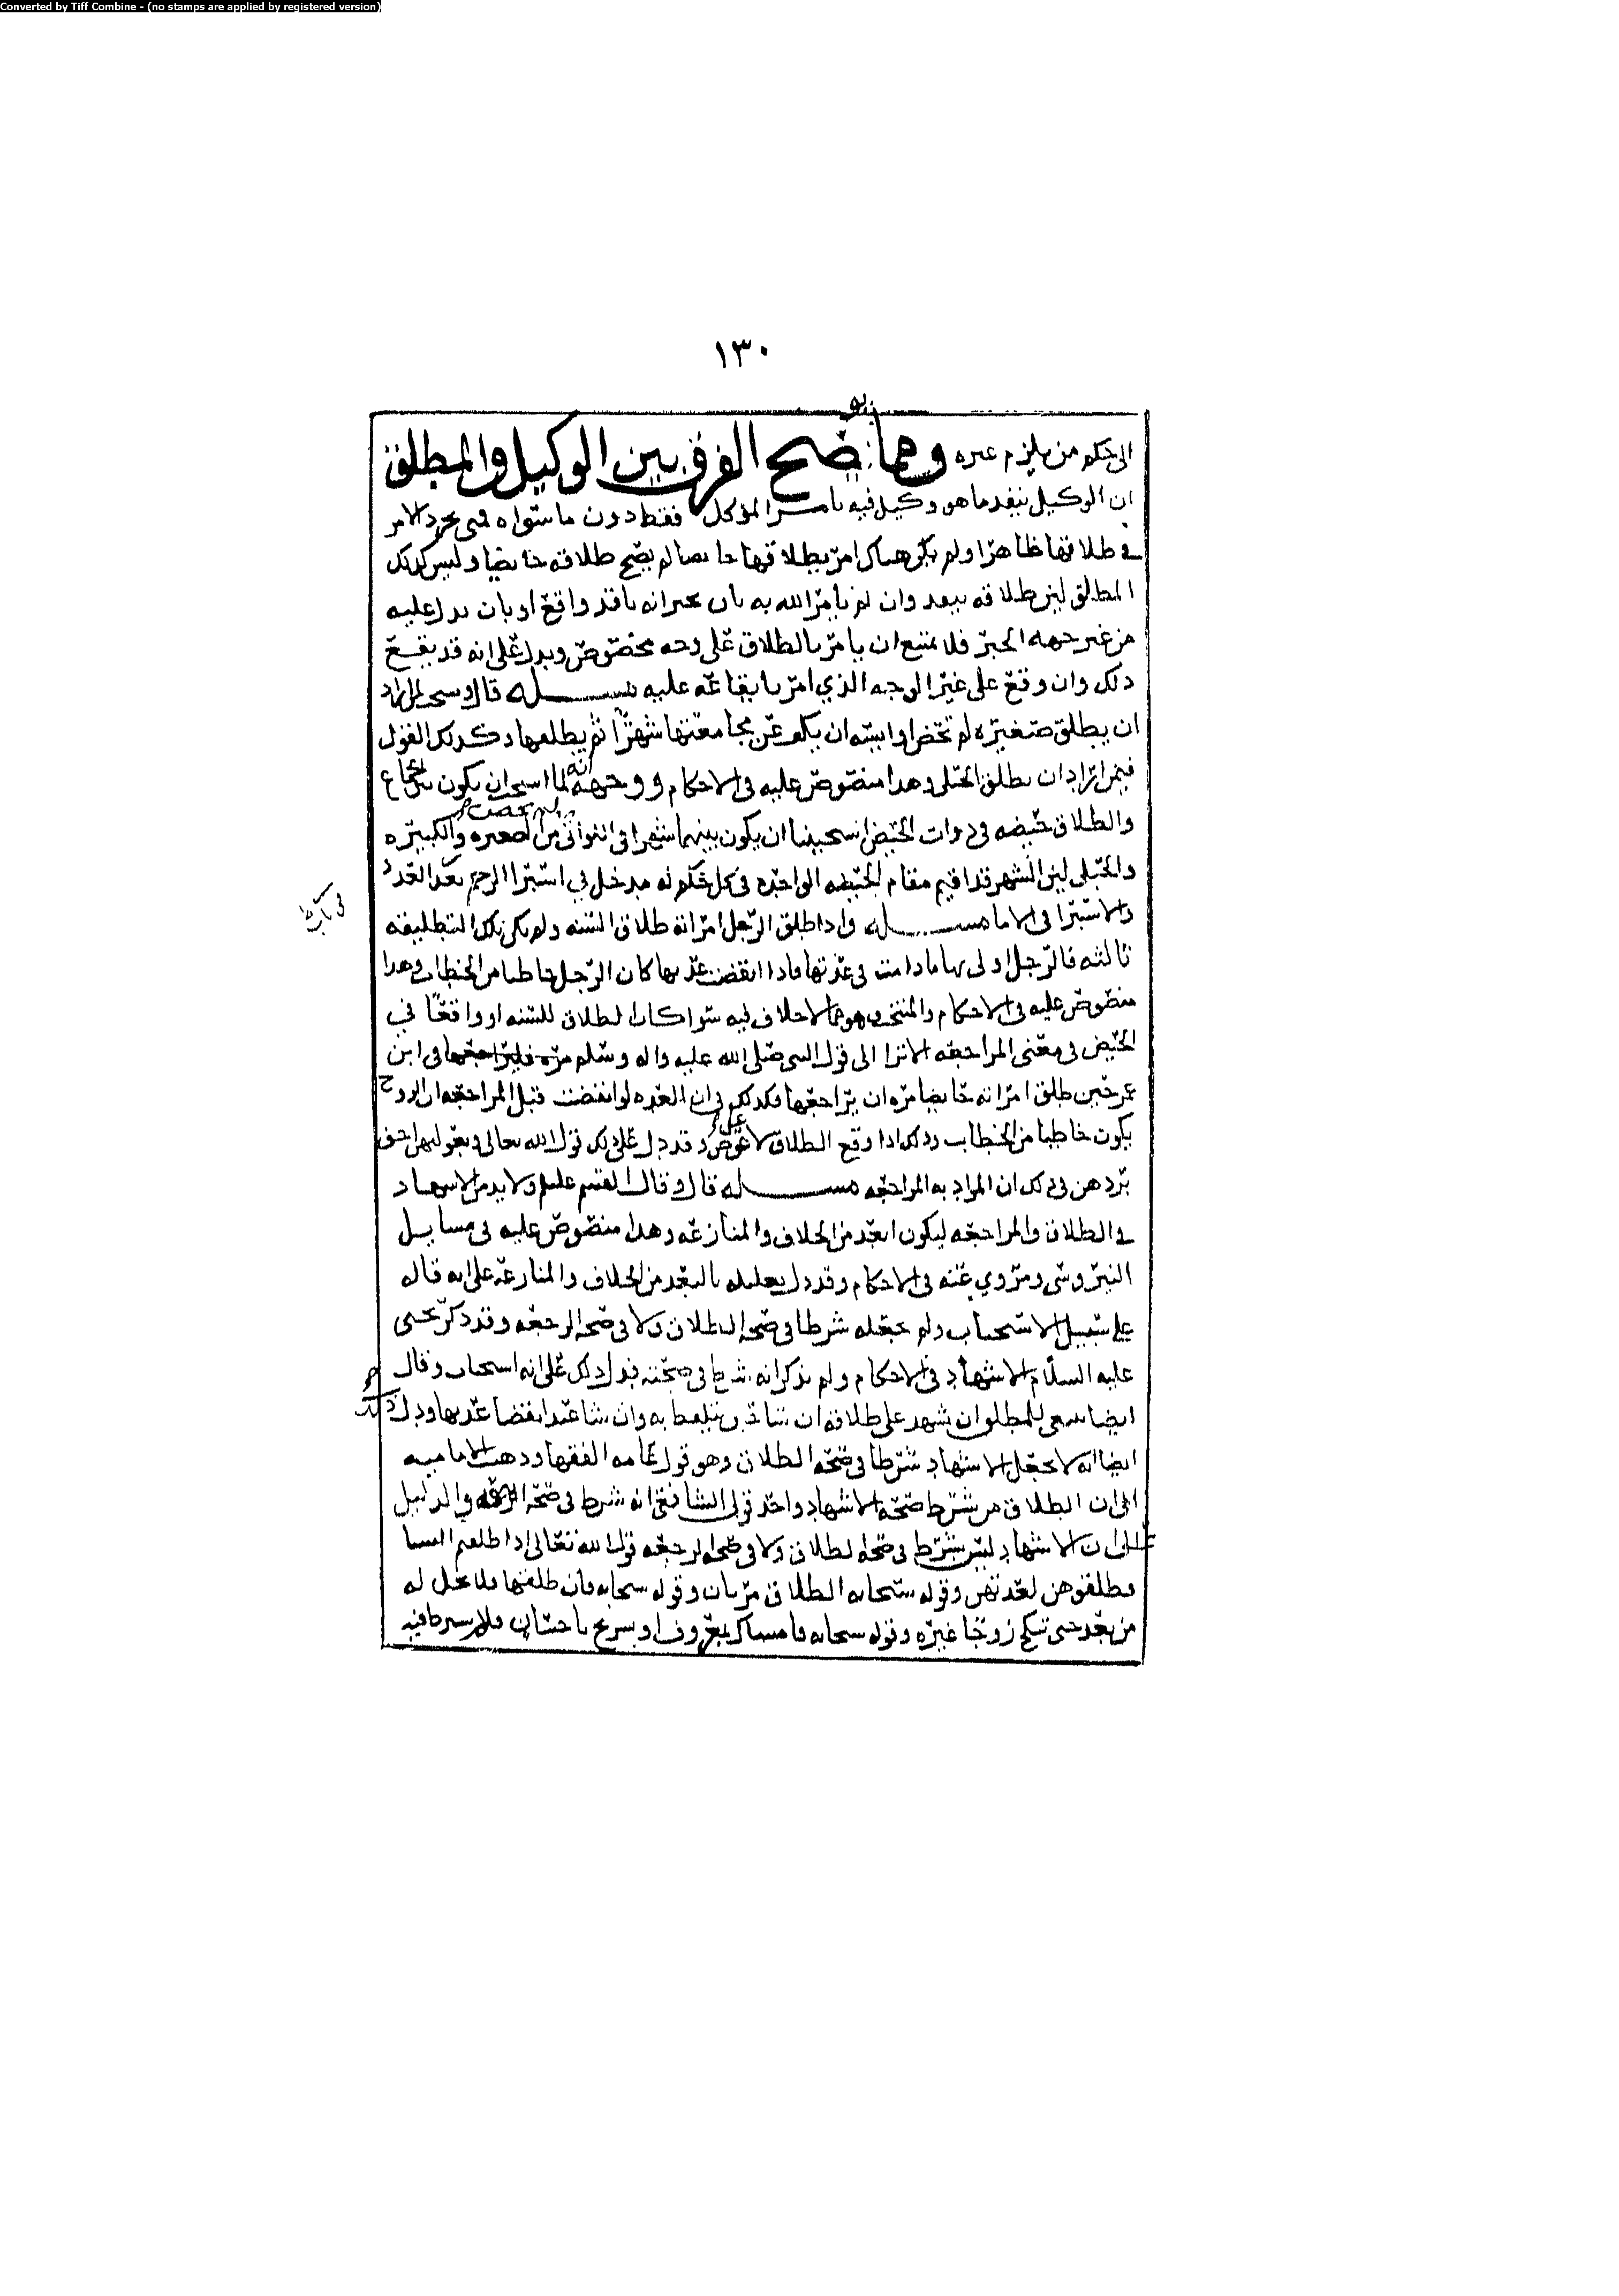 Converted by Tiff Combine - (no stamps are applied by registered version)
١٣٠
الى حكم من يلزم غيره ومما يوضح الفرق بين الوكيل والمطلق
ان الوكيل ينفد ما هو وكيل فيه بامر المؤكل فقط دون ما سواه فمتى تجرد الامر
في طلاقها ظاهرا ولم يكن هناك امر بطلاقها حايضا لم يصح طلاقه حايضا وليس كدلك
المطلق لان طلاقه ينفد وان لم يامر الله به بان يخبر انه نافد واقع او بان يدل عليه
من غير جهه الخبر فلا يمتنع ان يامر بالطلاق على وجه مخصوص ويدل على انه قد يقع
دلك وان وقع على غير الوجه الذي امر بايقاعه عليه مسـله قال ويستحب لمن اراد
ان يطلق صغيره لم تحض او ايسه ان يكف عن مجامعتها شهرا ثم يطلقها وكدلك القول
فيمن اراد ان يطلق الحبلى وهدا منصوص عليه في الاحكام ووجهه انه لما استحب ان يكون بين الجماع
والطلاق حيضه في دوات الحيض استحببنا ان يكون بينهما شهرا في اللواتي لم يحضن من الصغيره والكبيره
والحبلى لان الشهر قد اقيم مقام الحيضه الواحده في كل حكم له مدخل في استبرا الرحم بعد العدد
والاستبرا في الاما مسـله وادا طلق الرجل امراته طلاق السنه ولم يكن تلك التطليقه
ثالثه فالرجل اولى بها ما دامت في عدتها فادا انقضت عدتها كان الرجل خاطبا من الخطاب وهدا
منصوص عليه في الاحكام والمنتخب وهو مما لا خلاف فيه سوا كان الطلاق للسنه او واقعا في
الحيض في معنى المراجعه الا ترا الى قول النبي صلى الله عليه واله وسلم مره فليراجعها في ابن
عمر حين طلق امراته حايضا مره ان يراجعها وكدلك في ان العده لو انقضت قبل المراجعه ان الزوج
يكون خاطبا من الخطاب ودلك ادا وقع الطلاق لا على عوض وقد دل على دلك قول الله تعالى وبعولتهن احق
بردهن في دلك ان المراد به المراجعه مسـله قال وقال القسم عليلم ولا بد من الاشهاد
في الطلاق والمراجعه ليكون ابعد من الخلاف والمنازعه وهدا منصوص عليه في مسايل
النيروسي ومروي عنه في الاحكام وقد دل تعليله بالبعد من الخلاف والمنازعه على انه قاله
على سبيل الاستحباب ولم يجعله شرطا في صحه الطلاق ولا في صحه الرجعه وقد دكر يحيى
عليه السلام الاشهاد في الاحكام ولم يدكر انه شرط في صحته فدل دلك على انه استحباب وقال
ايضا ينبغي للمطلق ان يشهد على طلاقه ان شا حين يتلفظ به وان شا عند انقضا عدتها ودل دلك
ايضا انه لا يجعل الاشهاد شرطا في صحه الطلاق وهو قول عامه الفقها ودهبت الاماميه
الى ان الطلاق من شرط صحته الاشهاد واحد قولي الشافعي انه شرط في صحه الرجعه والدليل
على ان الاشهاد ليس بشرط في صحه الطلاق ولا في صحه الرجعه قول الله تعالى ادا طلقتم النسا
فطلقوهن لعدتهن وقوله سبحانه الطلاق مرتان وقوله سبحانه فان طلقها فلا تحل له
من بعد حتى تنكح زوجا غيره وقوله سبحانه فامساك بمعروف او تسريح باحسان فلم يشرط فيه